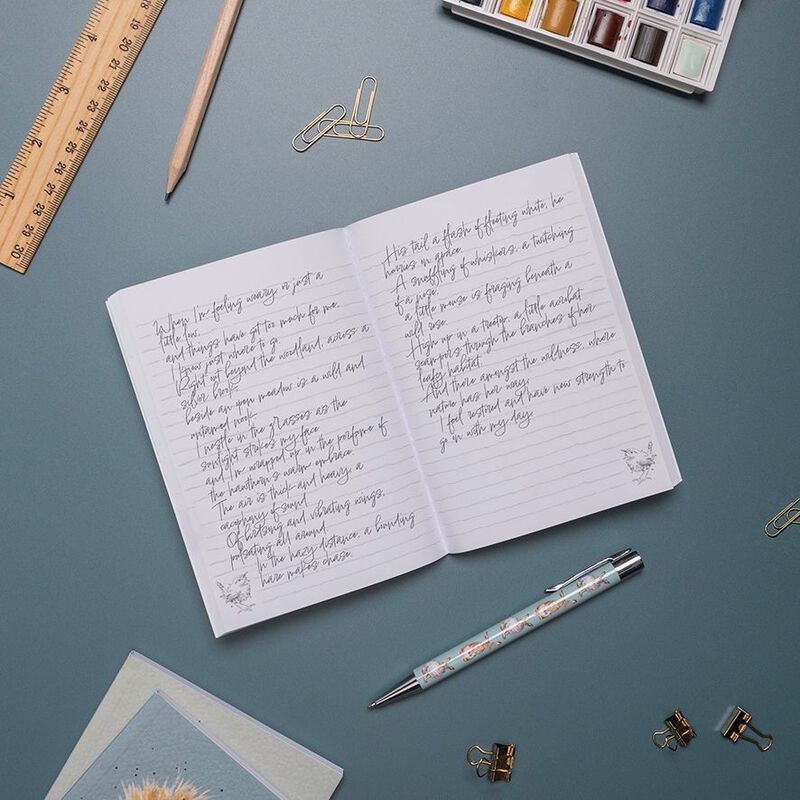 When I'm feeling weary, or just a
little low,
and things have got too much for me,
I know just where to go.
Right out beyond the woodland, across a
silver brook,
beside an open meadow is a wild and
untamed nook.
I nestle in the grasses as the
sunlight strokes my face
and I'm wrapped up in the perfume of
the hawthorn's warm embrace.
The air is thick and heavy, a
cacophony of sound
Of birdsong and vibrating wings,
pulsating all around.
In the hazy distance, a bounding
hare makes chase.
His tail a flash of fleeting white, he
hurries in grace.
A snuffling of whiskers, a twitching
of a nose,
a little mouse is foraging beneath a
wild rose.
High up in a treetop, a little acrobat
scampers through the branches of her
leafy habitat.
And there amongst the wildness, where
nature has her way,
I feel restored and have new strength to
go on with my day.
20 21 22 23 24 25 26 27 28 29 30